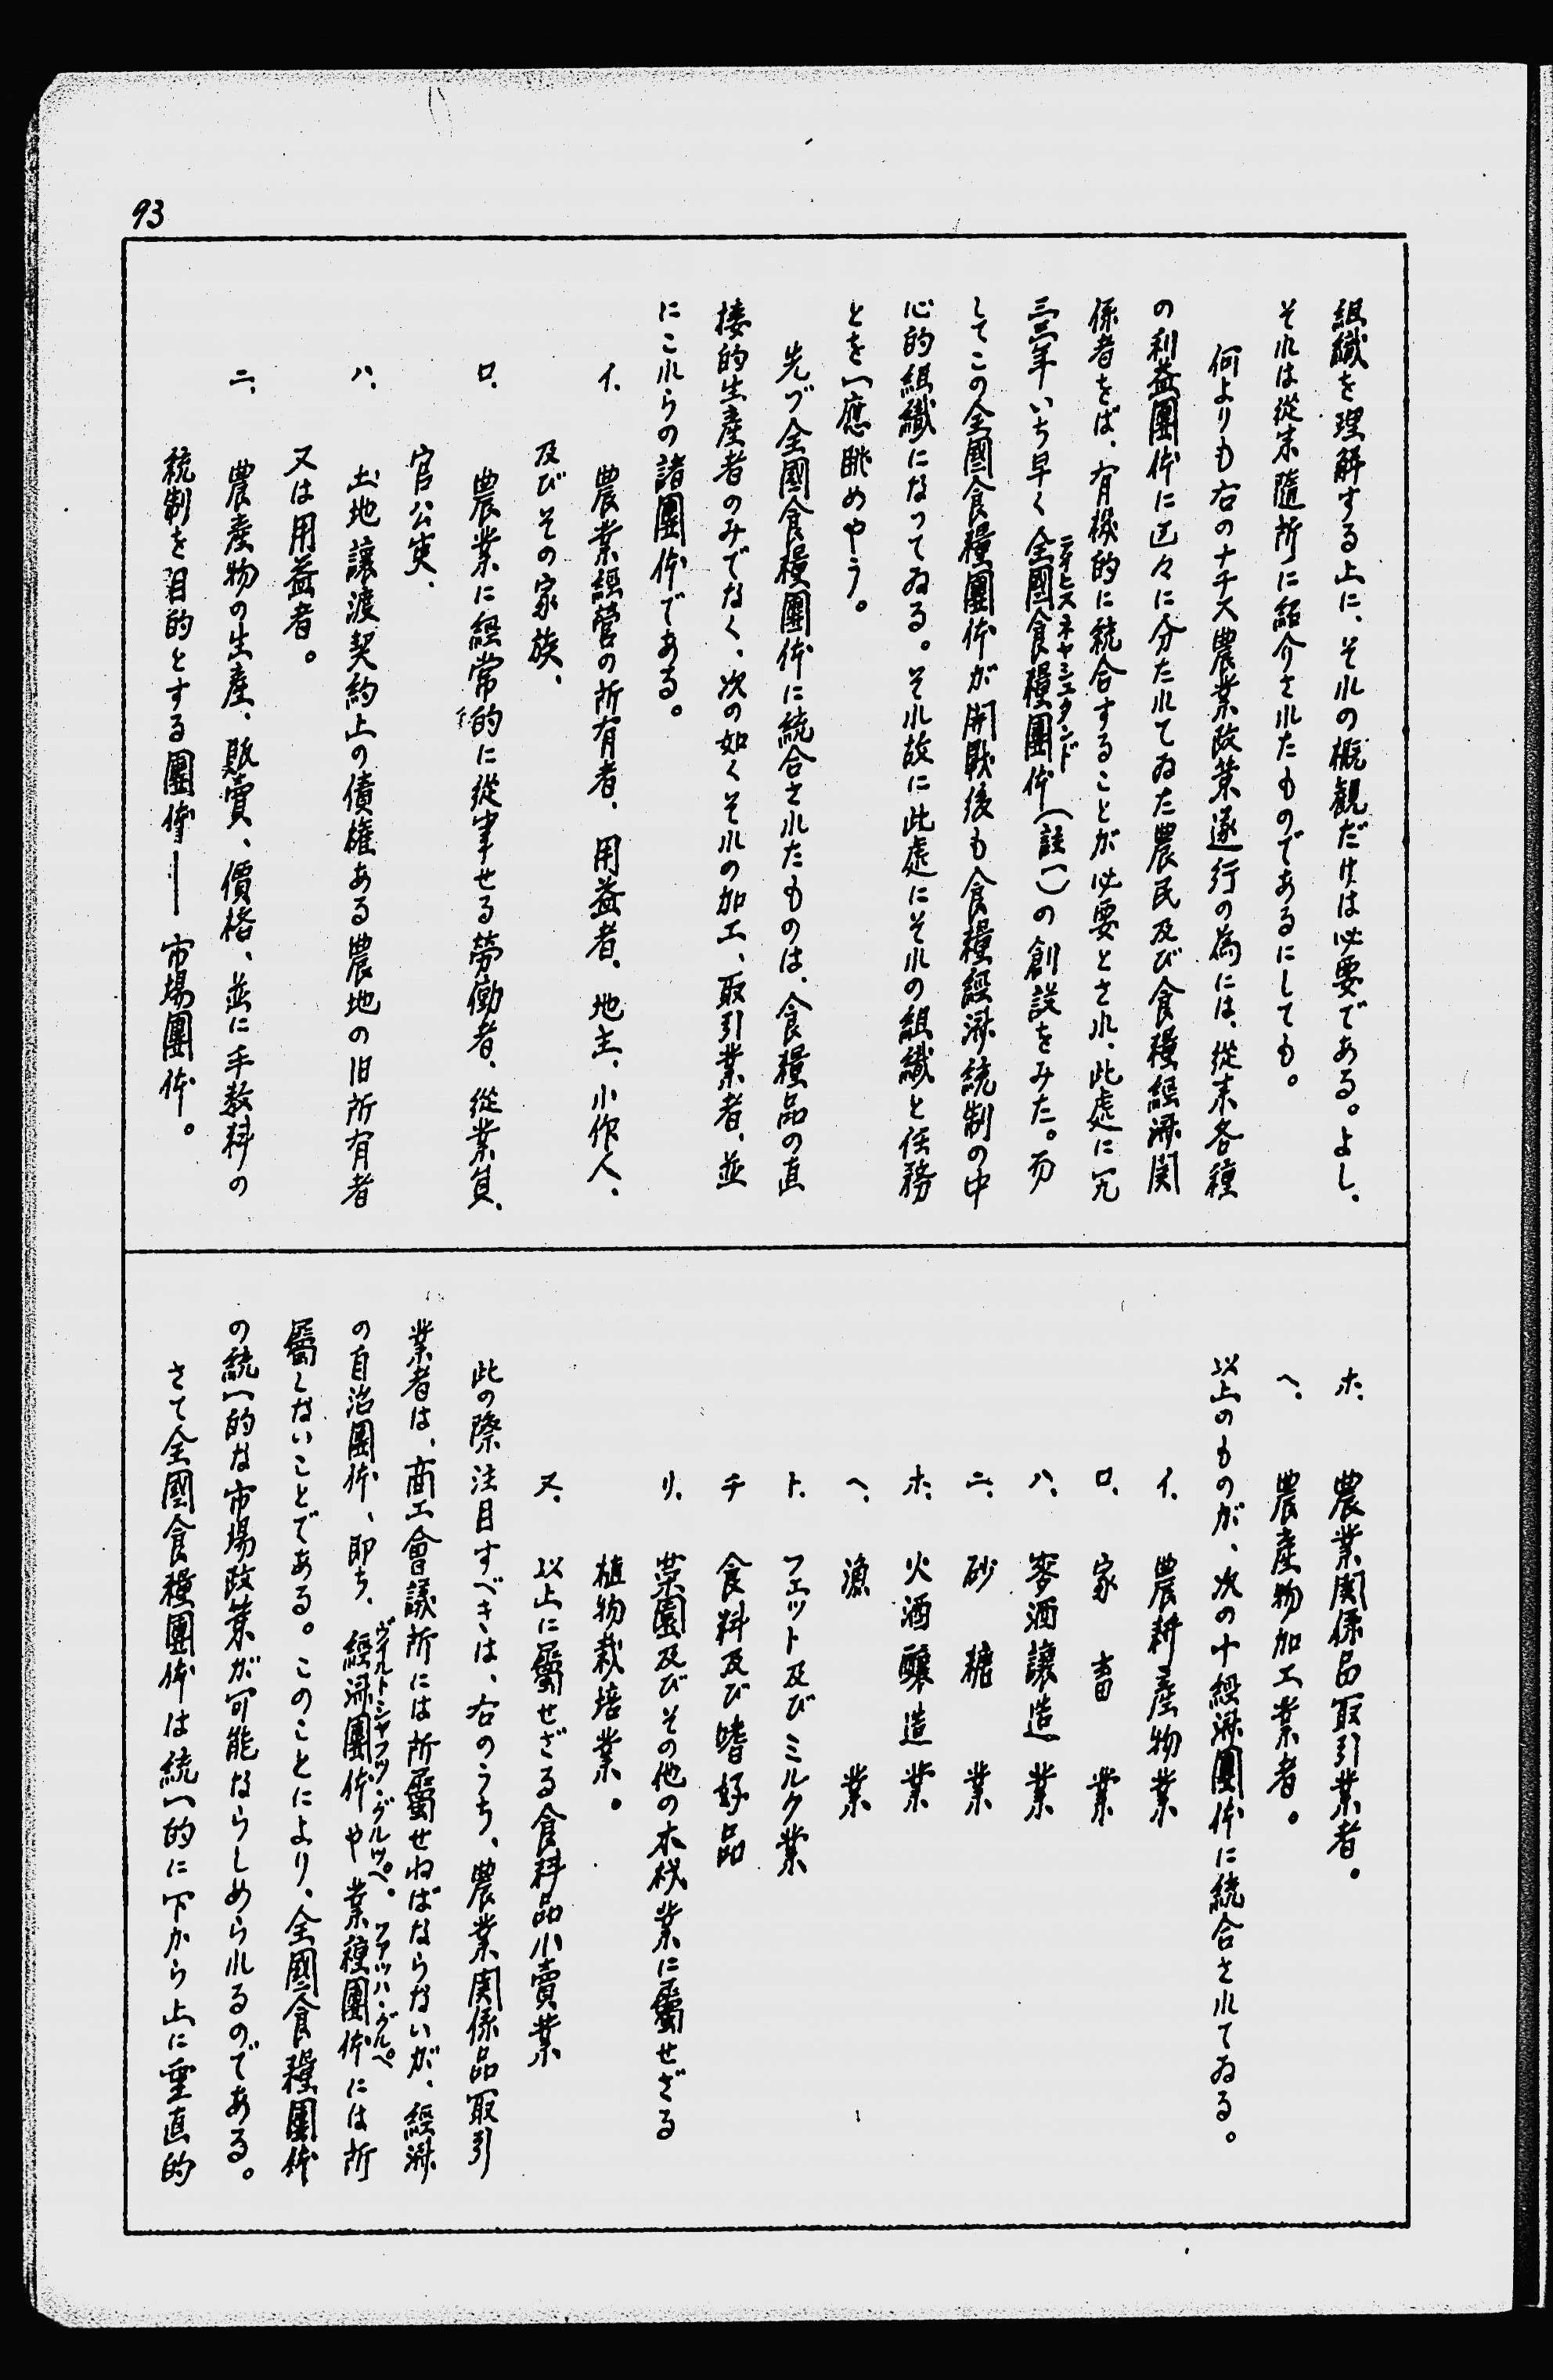 93
組織を理解する上に、それの概観だけは必要である。よし、
それは從来隨所に紹介されたものであるにしても。
何よりも右のナチス農業政策遂行の為には、從来各種
の利益團体に区々に分たれてゐた農民及び食糧經済関
係者をば、有機的に統合することが必要とされ、此處に一九
三三年いち早く全國食糧團体(註一)の創設をみた。而
ライヒスネヤシュタンド
してこの全國食糧團体が開戰後も食糧經済統制の中
心的組織になってゐる。それ故に此處にそれの組織と任務
とを一應眺めやう。
先づ全國食糧團体に統合されたものは、食糧品の直
接的生産者のみでなく、次の如くそれの加工、取引業者、並
にこれらの諸團体である。
イ、農業經営の所有者、用益者、地主、小作人、
及びその家族、
ロ、農業に經常的に從事せる勞働者、從業員、
官公吏、
ハ、土地讓渡契約上の債權ある農地の旧所有者
又は用益者。
ニ、農産物の生産、販賣、價格、並に手数料の
統制を目的とする團体―市場團体。
ホ、農業関係品取引業者。
ヘ、農産物加工業者。
以上のものが、次の十經済團体に統合されてゐる。
イ、農耕産物業
ロ、家畜業
ハ、麥酒讓造業
ニ、砂糖業
ホ、火酒釀造業
ヘ、漁業
ト、フェット及びミルク業
チ 食料及び嗜好品
リ、菜園及びその他の木材業に屬せざる
植物栽培業。
ヌ、以上に屬せざる食料品小賣業
此の際注目すべきは、右のうち、農業関係品取引
業者は、商工會議所には所屬せねばならないが、經済
の自治團体、即ち、經済團体や業種團体には所
ヴィルトシャフツ・グルッペ。ファッハ・グルペ
屬しないことである。このことにより、全國食糧團体
の統一的な市場政策が可能ならしめられるのである。
さて全國食糧團体は統一的に下から上に垂直的